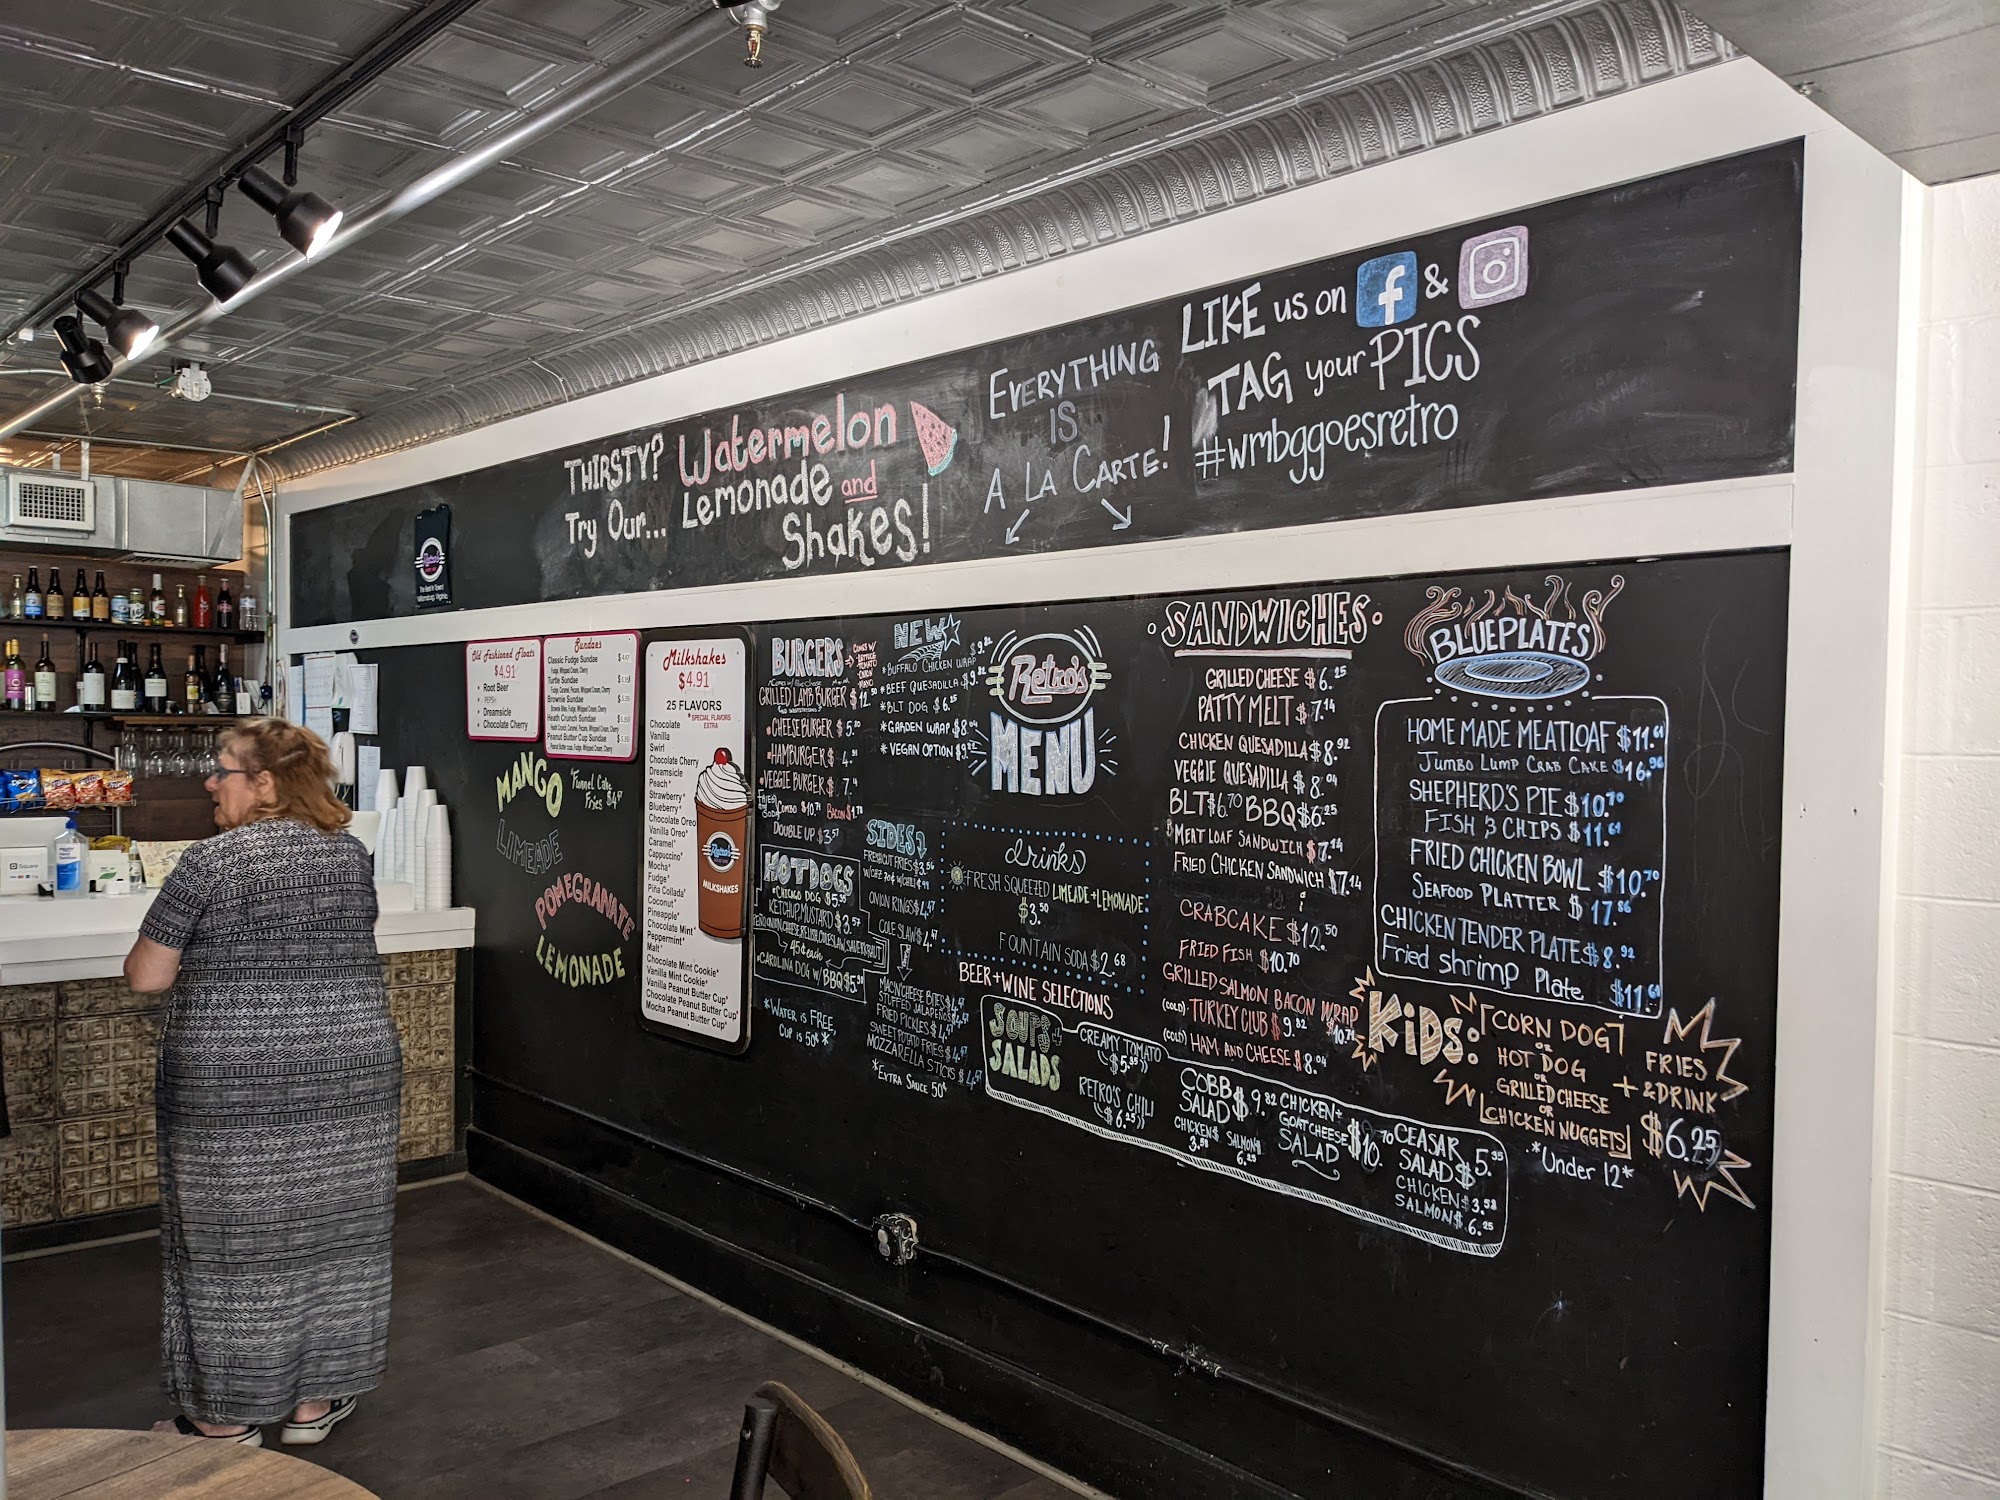 THIRSTY?
Try Our...
Watermelon
Lemonade and
Shakes!
EVERYTHING
IS
A LA CARTE!
LIKE us on f &
TAG your PICS
#wmbggoesretro
Retro's
Old Fashioned Floats
$4.91
Root Beer
PEPSI
Dreamsicle
Chocolate Cherry
Sundaes
Classic Fudge Sundae
Fudge, Whipped Cream, Cherry
Turtle Sundae
Fudge, Caramel, Pecans, Whipped Cream, Cherry
Brownie Sundae
Brownie Bites, Fudge, Whipped Cream, Cherry
Heath Crunch Sundae
Peanut Butter Cup Sundae
MANGO
Funnel Cake
Fries $4.47
LIMEADE
POMEGRANATE
LEMONADE
Milkshakes
$4.91
25 FLAVORS
*SPECIAL FLAVORS
EXTRA
Chocolate
Vanilla
Swirl
Chocolate Cherry
Dreamsicle
Peach*
Strawberry*
Blueberry*
Chocolate Oreo
Vanilla Oreo*
Caramel*
Cappuccino*
Mocha*
Fudge*
Piña Colada*
Coconut*
Pineapple*
Chocolate Mint*
Peppermint*
Malt*
Chocolate Mint Cookie*
Vanilla Mint Cookie*
Vanilla Peanut Butter Cup*
Chocolate Peanut Butter Cup*
Mocha Peanut Butter Cup*
Retro's
MILKSHAKES
BURGERS
COMES W/
LETTUCE
TOMATO
ONION
MAYO
GRILLED LAMB BURGER $12.50
CHEESEBURGER $5.80
HAMBURGER $4.91
VEGGIE BURGER $7.14
FRIES and SODA COMBO $10.71 BACON $1.78
DOUBLE UP $3.57
HOTDOGS
*CHICAGO DOG $5.35
KETCHUP, MUSTARD $3.57
45¢ each
*CAROLINA DOG W/ BBQ $5.35
*WATER IS FREE,
CUP IS 50¢*
NEW
*BUFFALO CHICKEN WRAP $9.82
*BEEF QUESADILLA $9.82
*BLT DOG $6.25
*GARDEN WRAP $8.04
*VEGAN OPTION $9.82
SIDES
FRESH CUT FRIES $3.56
ONION RINGS $4.47
COLE SLAW $4.47
MAC'N'CHEESE BITES $4.47
STUFFED JALAPEÑOS $4.47
FRIED PICKLES $4.47
SWEET POTATO FRIES $4.47
MOZZARELLA STICKS $4.47
*EXTRA SAUCE 50¢
Retro's
MENU
drinks
FRESH SQUEEZED LIMEADE + LEMONADE
$3.50
FOUNTAIN SODA $2.68
BEER + WINE SELECTIONS
SOUPS +
SALADS
CREAMY TOMATO
$5.35
RETRO'S CHILI
$6.25
COBB
SALAD $9.82
CHICKEN $3.58
SALMON $6.25
CHICKEN +
GOAT CHEESE
SALAD $10.70
CEASAR
SALAD $5.35
CHICKEN $3.58
SALMON $6.25
SANDWICHES
GRILLED CHEESE $6.25
PATTY MELT $7.14
CHICKEN QUESADILLA $8.92
VEGGIE QUESADILLA $8.04
BLT $6.70 BBQ $6.25
MEAT LOAF SANDWICH $7.14
FRIED CHICKEN SANDWICH $7.14
CRABCAKE $12.50
FRIED FISH $10.70
GRILLED SALMON BACON WRAP $10.71
(COLD) TURKEY CLUB $9.82
(COLD) HAM AND CHEESE $8.04
BLUEPLATES
HOME MADE MEATLOAF $11.61
JUMBO LUMP CRAB CAKE $16.96
SHEPHERD'S PIE $10.70
FISH & CHIPS $11.61
FRIED CHICKEN BOWL $10.70
SEAFOOD PLATTER $17.86
CHICKEN TENDER PLATE $8.92
Fried shrimp Plate $11.61
KIDS:
CORN DOG
OR
HOT DOG
OR
GRILLED CHEESE
OR
CHICKEN NUGGETS
+ FRIES
& DRINK
$6.25
*Under 12*
Square